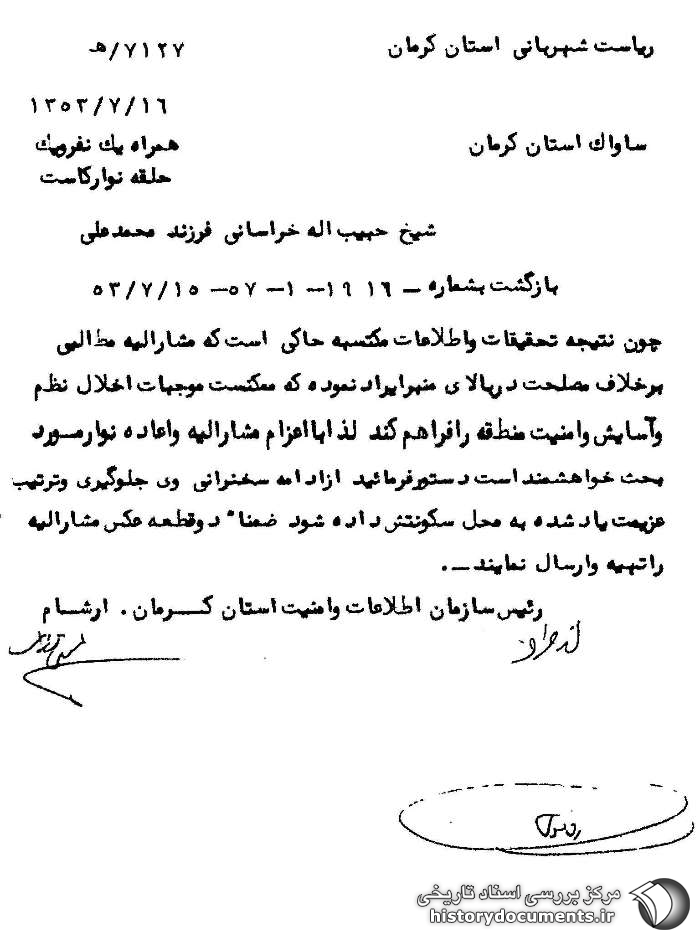 ریاست شهربانی استان کرمان
۷۱۲۷/هـ
۱۳۵۳/۷/۱۶
ساواک استان کرمان
همراه یک نفرویک
حلقه نوارکاست
شیخ حبیب اله خراسانی فرزند محمدعلی
بازگشت بشماره – ۱۹۱۶ –۱ –۵۷ –۵۳/۷/۱۵
چون نتیجه تحقیقات واطلاعات مکتسبه حاکی است که مشارالیه مطالبی
برخلاف مصلحت دربالای منبرایراد نموده که ممکنست موجبات اخلال نظم
وآسایش وامنیت منطقه رافراهم کند لذا بااعزام مشارالیه واعاده نوارمورد
بحث خواهشمند است دستورفرمائید ازادامه سخنرانی وی جلوگیری وترتیب
عزیمت یاد شده به محل سکونتش داده شود ضمناً دوقطعه عکس مشارالیه
راتهیه وارسال نمایند –.
رئیس سازمان اطلاعات وامنیت استان کرمان . ارشام
مرکز بررسی اسناد تاریخی
historydocuments.ir